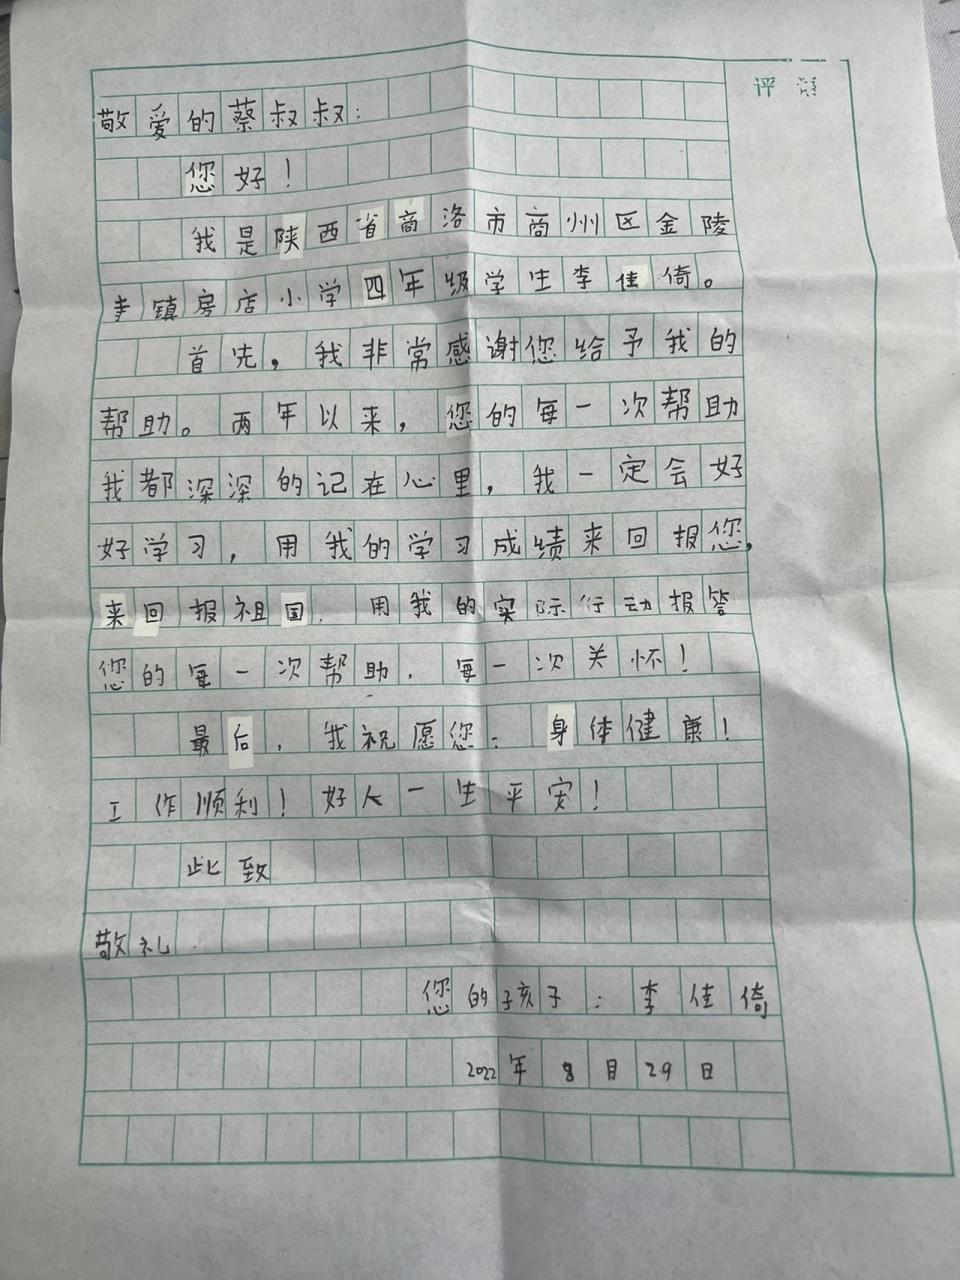 评 语
敬爱的蔡叔叔：
您好！
我是陕西省商洛市商州区金陵
寺镇房店小学四年级学生李佳倚。
首先，我非常感谢您给予我的
帮助。两年以来，您的每一次帮助
我都深深的记在心里，我一定会好
好学习，用我的学习成绩来回报您，
来回报祖国．用我的实际行动报答
您的每一次帮助．每一次关怀！
最后，我祝愿您：身体健康！
工作顺利！好人一生平安！
此致
敬礼
您的孩子：李佳倚
2022年8月29日